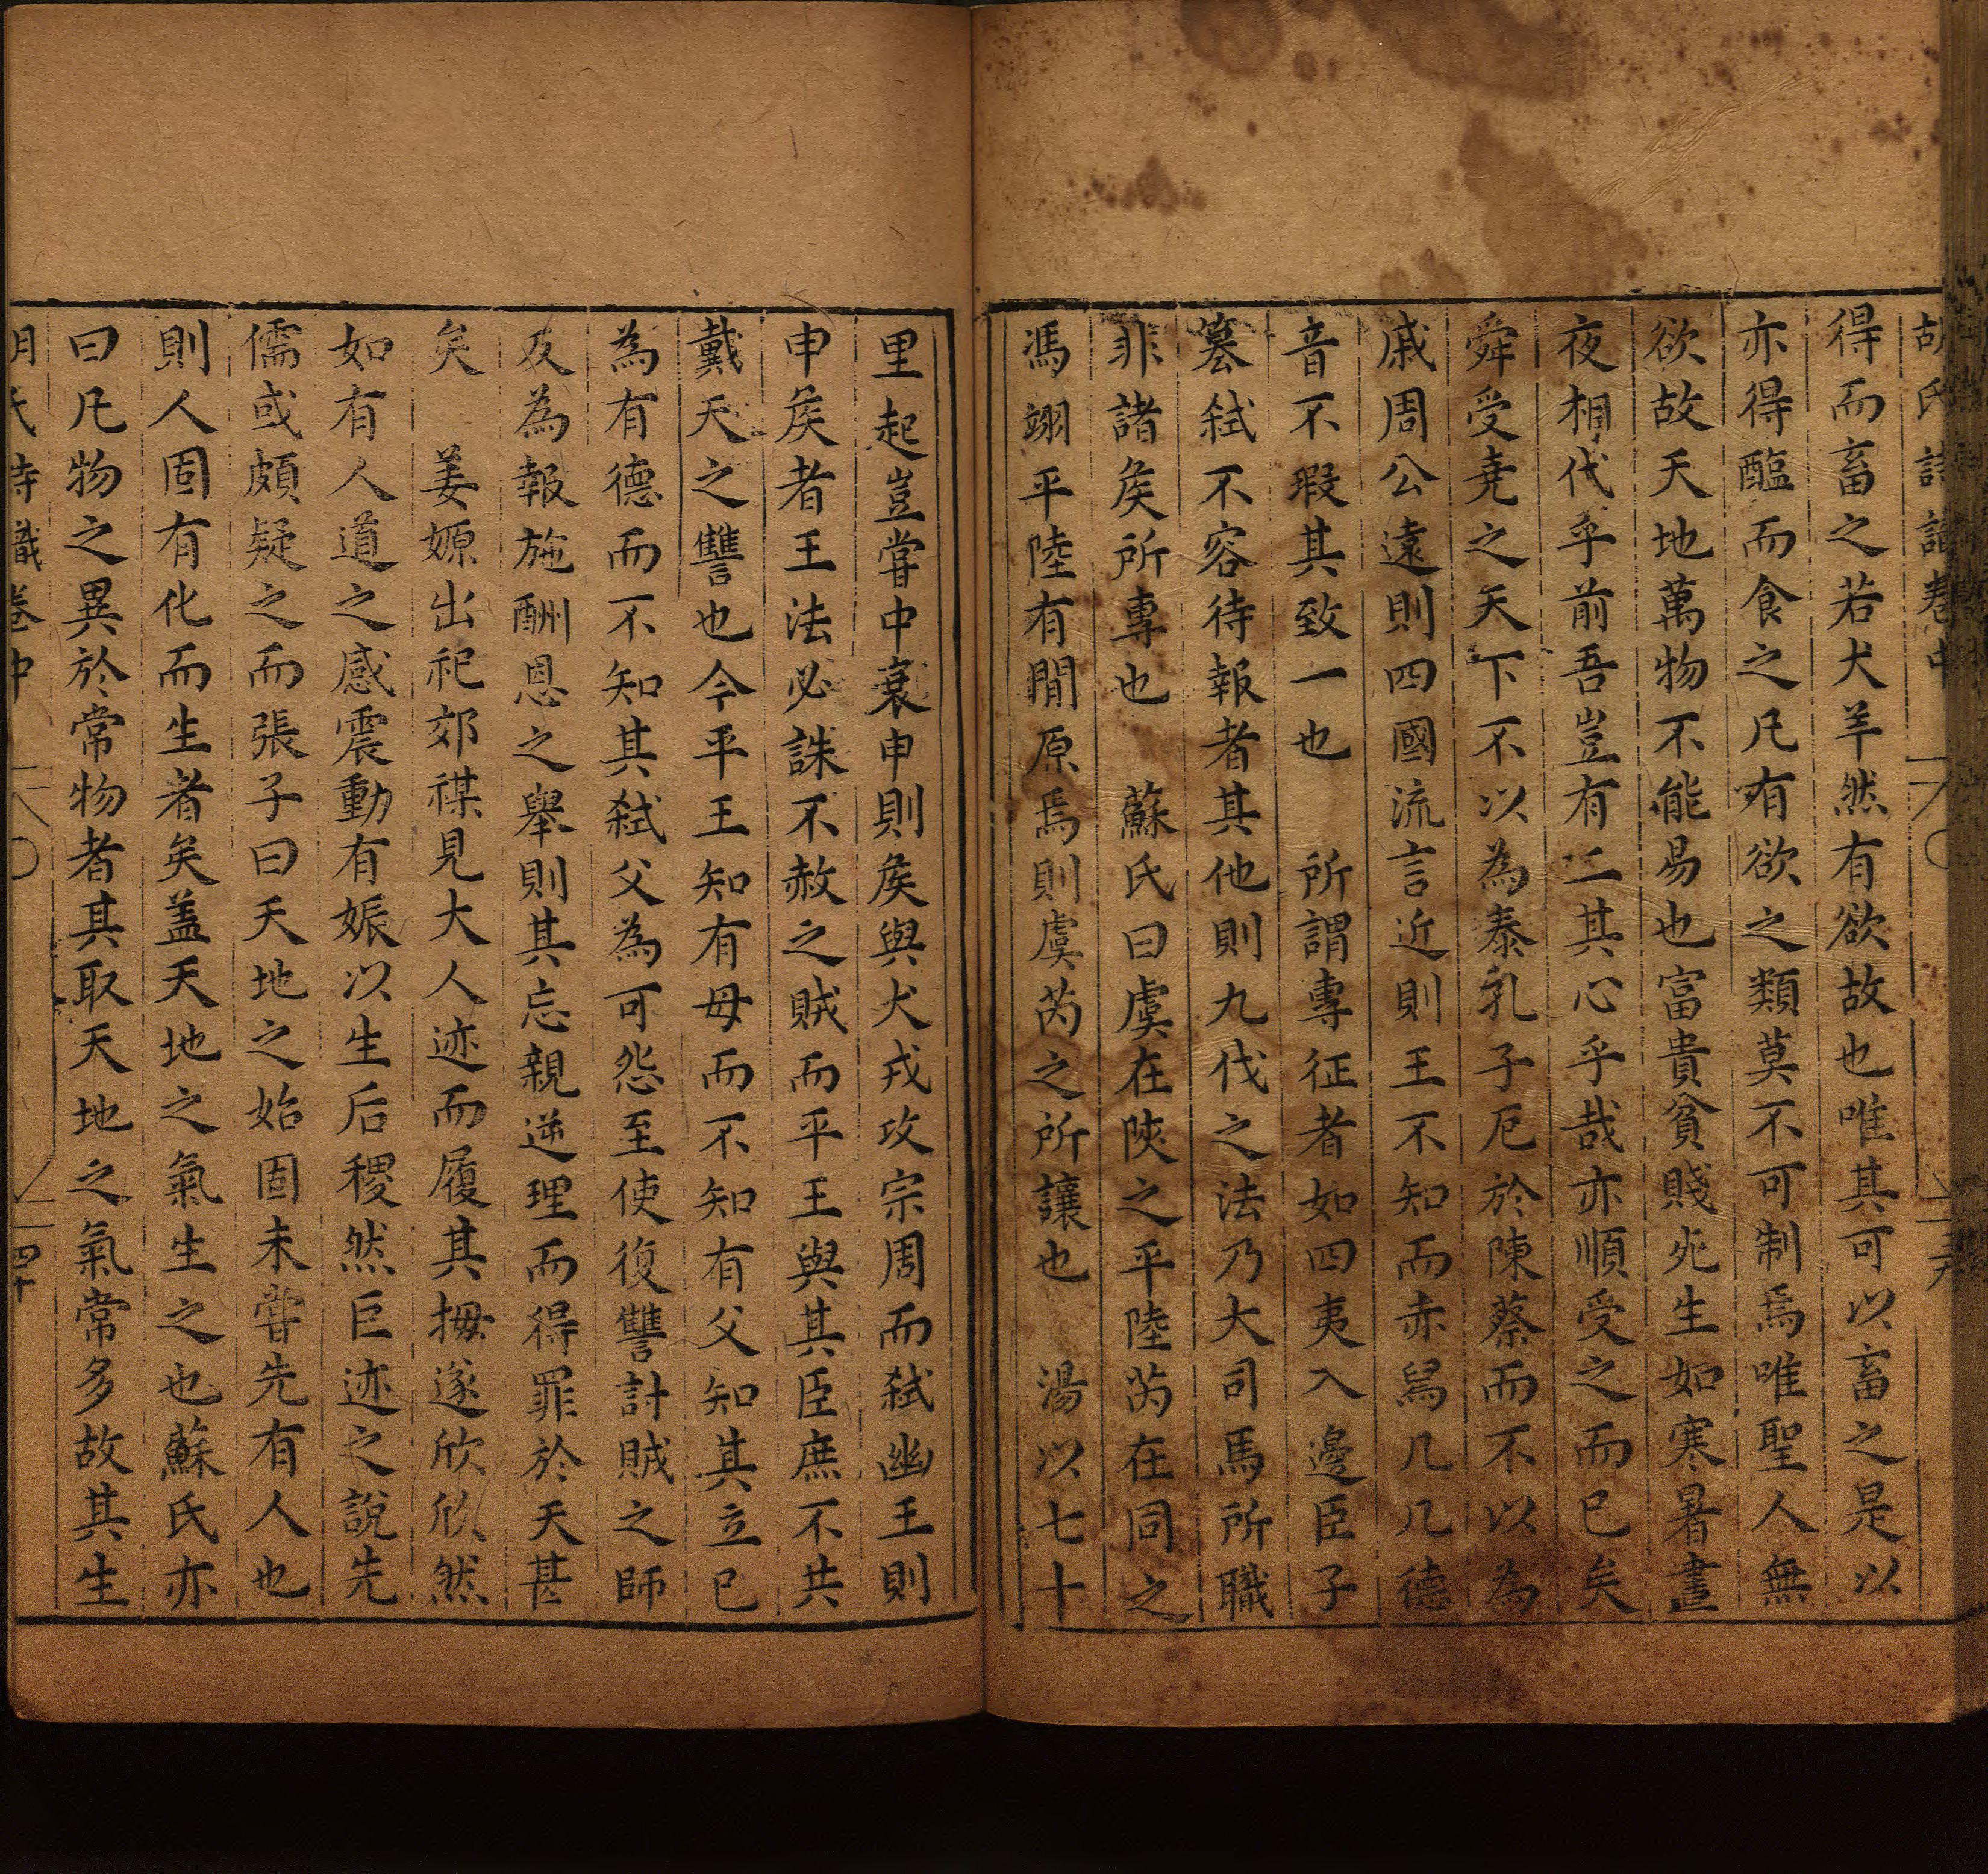 胡氏詩識卷中 三九
得而畜之若犬羊然有欲故也唯其可以畜之是以
亦得醢而食之凡有欲之類莫不可制焉唯聖人無
欲故天地萬物不能易也富貴貧賤死生如寒暑晝
夜相代乎前吾豈有二其心乎哉亦順受之而已矣
舜受堯之天下不以為泰孔子厄於陳蔡而不以為
戚周公遠則四國流言近則王不知而赤舃几几德
音不瑕其致一也 所謂專征者如四夷入邊臣子
篡弑不容待報者其他則九伐之法乃大司馬所職
非諸矦所專也 蘇氏曰虞在陝之平陸芮在同之
馮翊平陸有閒原焉則虞芮之所讓也 湯以七十
里起豈甞中衰申則矦與犬戎攻宗周而弑幽王則
申矦者王法必誅不赦之賊而平王與其臣庶不共
戴天之讐也今平王知有母而不知有父知其立已
為有德而不知其弑父為可怨至使復讐討賊之師
反為報施酬恩之舉則其忘親逆理而得罪於天甚
矣 姜嫄出祀郊禖見大人迹而履其拇遂欣欣然
如有人道之感震動有娠以生后稷然巨迹之說先
儒或頗疑之而張子曰天地之始固未甞先有人也
則人固有化而生者矣盖天地之氣生之也蘇氏亦
曰凡物之異於常物者其取天地之氣常多故其生
胡氏詩識卷中 四十